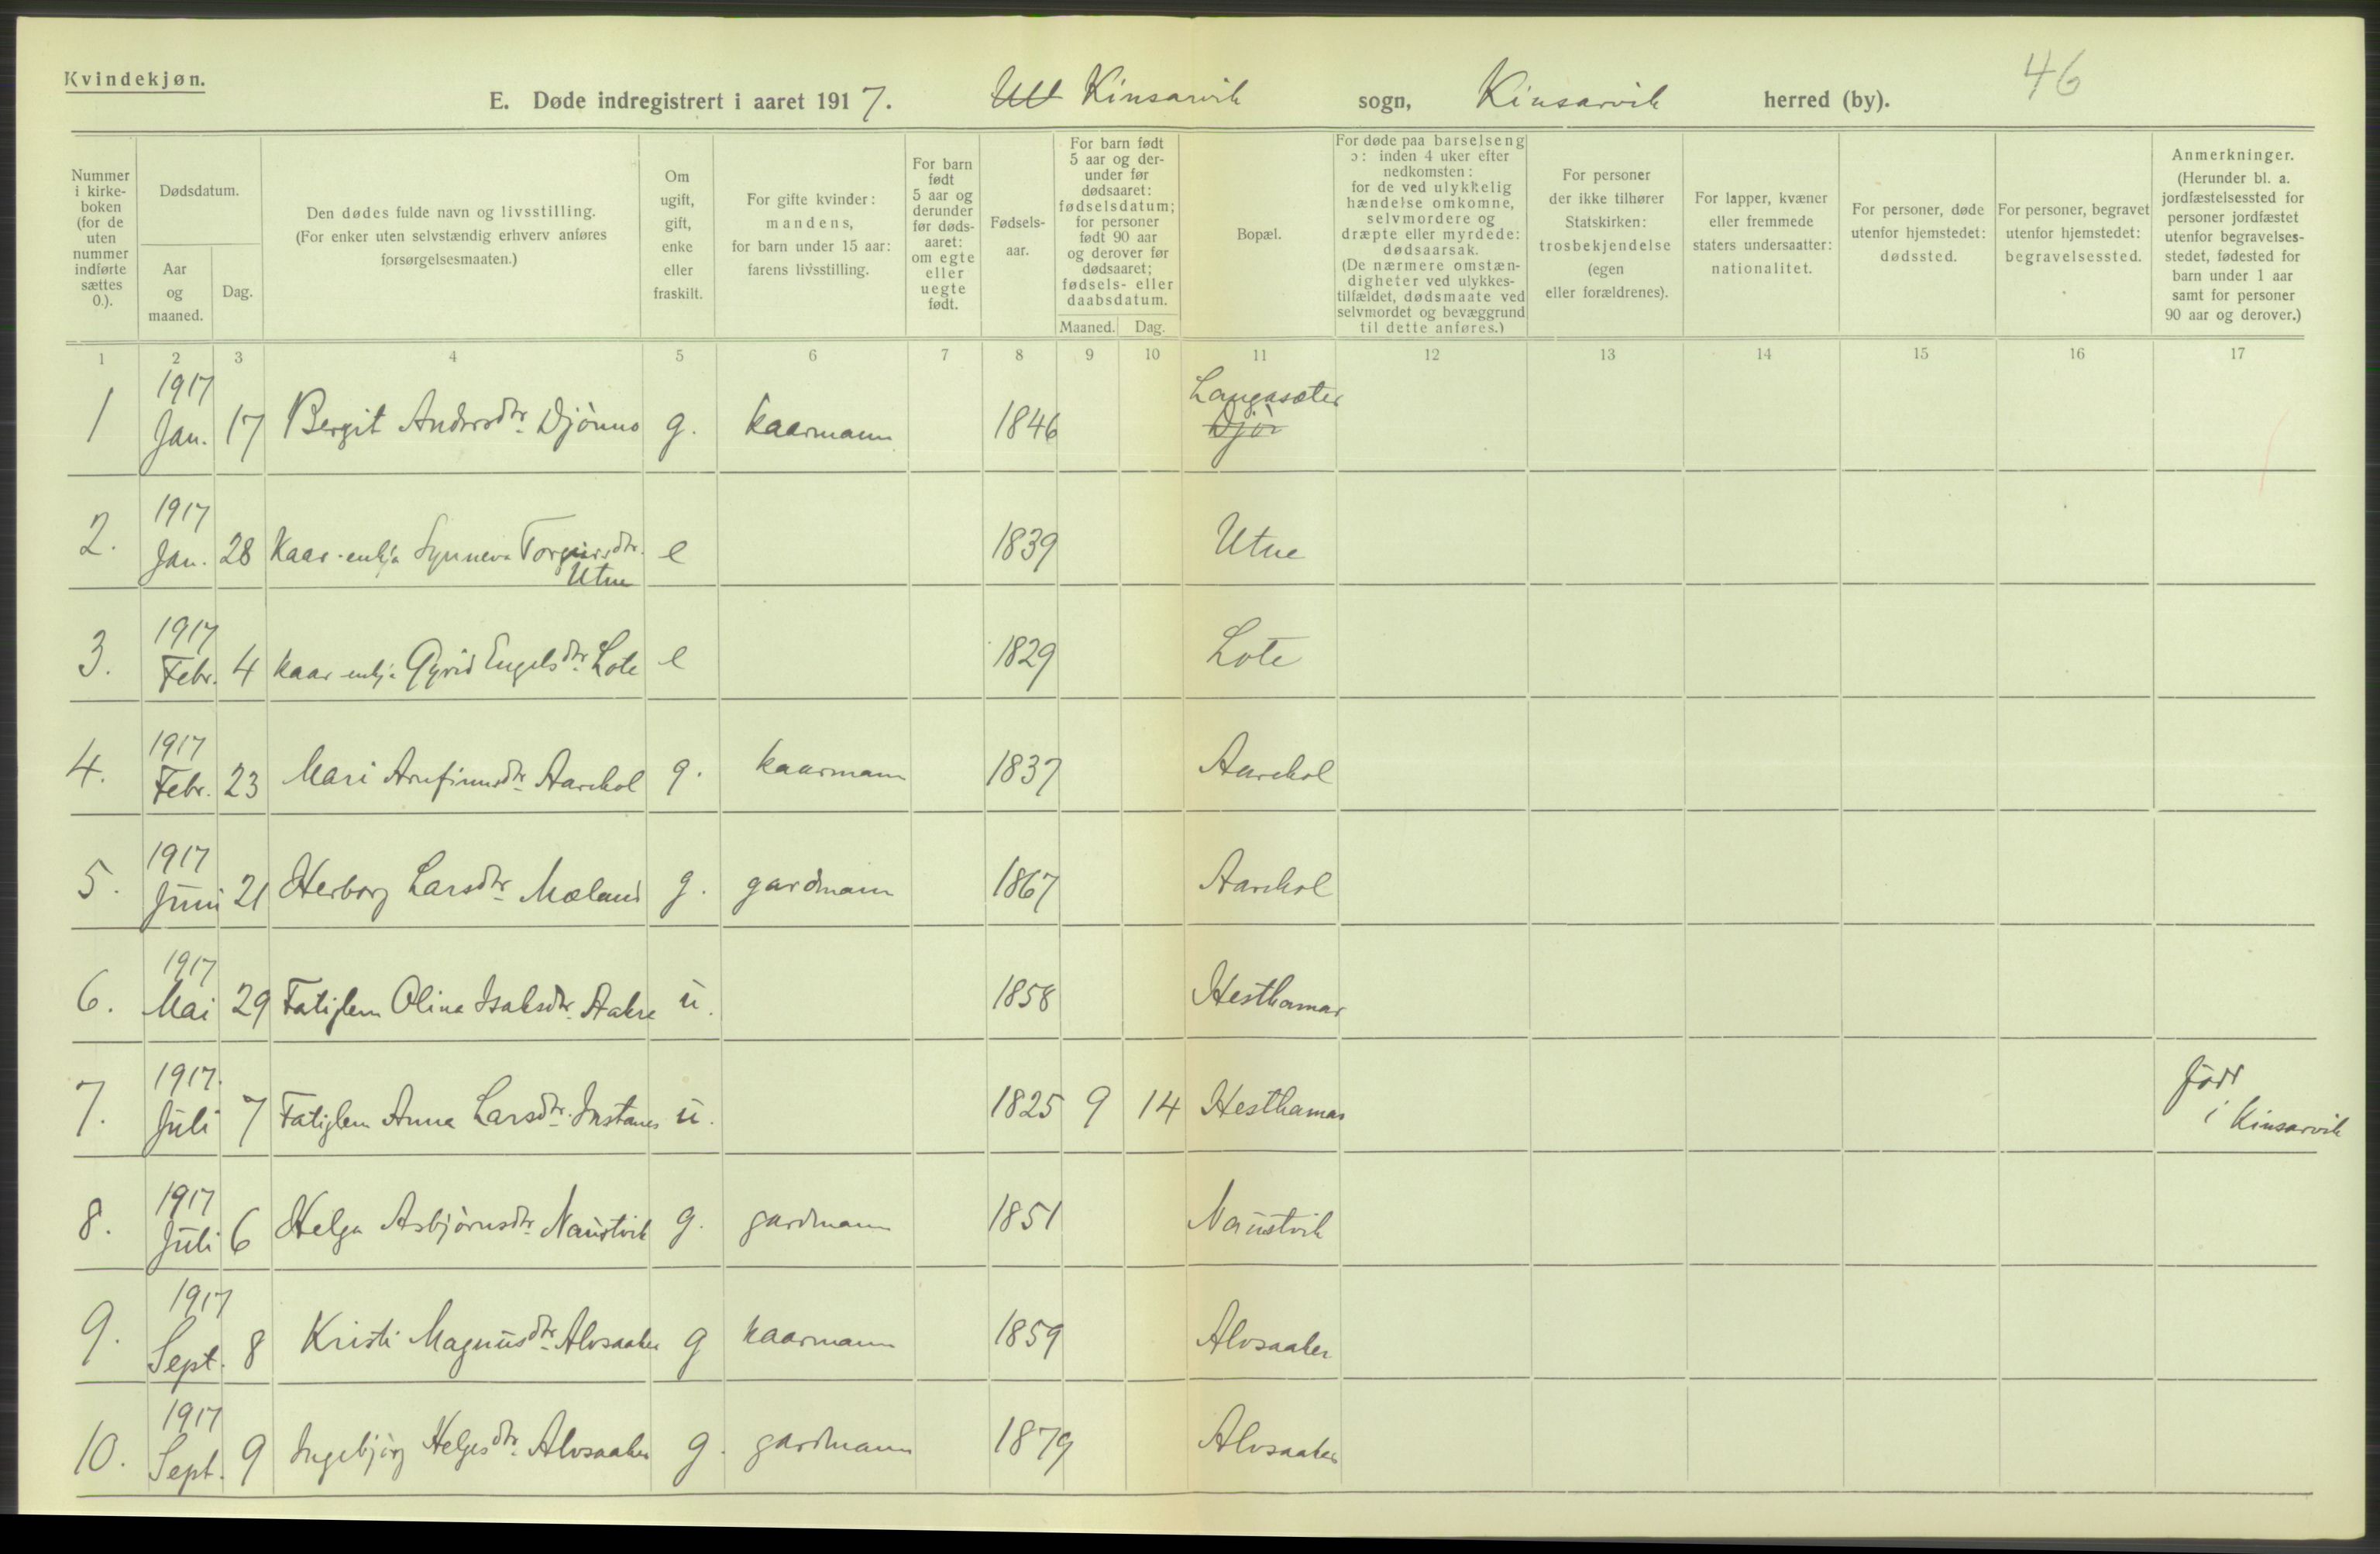 Kvindekjøn.
E. Døde indregistrert i aaret 1917. Kinsarvik sogn, Kinsarvik herred (by).
46
Nummer i kirkeboken (for de uten nummer indførte sættes 0.).
Dødsdatum.
Aar og maaned.
Dag.
Den dødes fulde navn og livsstilling.
(For enker uten selvstændig erhverv anføres
forsørgelsesmaaten.)
Om ugift, gift, enke eller fraskilt.
For gifte kvinder:
mandens,
for barn under 15 aar:
farens livsstilling.
For barn født 5 aar og derunder før dødsaaret: om egte eller uegte født.
Fødselsaar.
For barn født 5 aar og derunder før dødsaaret: fødselsdatum; for personer født 90 aar og derover før dødsaaret; fødsels- eller daabsdatum.
Maaned. Dag.
Bopæl.
For døde paa barselseng
ɔ: inden 4 uker efter
nedkomsten:
for de ved ulykkelig
hændelse omkomne,
selvmordere og
dræpte eller myrdede:
dødsaarsak.
(De nærmere omstæn-
digheter ved ulykkes-
tilfældet, dødsmaate ved
selvmordet og bevæggrund
til dette anføres.)
For personer
der ikke tilhører
Statskirken:
trosbekjendelse
(egen
eller forældrenes).
For lapper, kvæner
eller fremmede
staters undersaatter:
nationalitet.
For personer, døde
utenfor hjemstedet:
dødssted.
For personer, begravet
utenfor hjemstedet:
begravelsessted.
Anmerkninger.
(Herunder bl. a.
jordfæstelsessted for
personer jordfæstet
utenfor begravelses-
stedet, fødested for
barn under 1 aar
samt for personer
90 aar og derover.)
1 2 3 4 5 6 7 8 9 10 11 12 13 14 15 16 17
1 1917 Jan. 17 Bergit Andersdtr. Djønno g. kaarmann 1846 Langasæter Djøn
2. 1917 Jan. 28 Kaar-enkja Synneva Torgeirsdtr. Utne e 1839 Utne
3. 1917 Febr. 4 kaar enkja Gyrid Engelsdtr. Lote e 1829 Lote
4. 1917 Febr. 23 Mari Arnfinnsdtr. Aarekol g. kaarmann 1837 Aarekol
5. 1917 Juni 21 Herborg Larsdtr. Mæland g. gardmann 1867 Aarekol
6. 1917 Mai 29 Fatiglem Olina Isaksdtr. Aakre u. 1858 Hesthamar
7. 1917. Juli 7 Fatiglem Anna Larsdtr. Instanes u. 1825 9 14 Hesthamar født i Kinsarvik
8. 1917 Juli 6 Helga Asbjørnsdtr. Naustvik g. gardmann 1851 Naustvik
9. 1917 Sept. 8 Kristi Magnusdtr. Alvsaaker g kaarmann 1859 Alvsaaker
10. 1917 Sept. 9 Ingebjørg Helgesdtr. Alvsaaker g. gardmann 1879 Alvsaaker